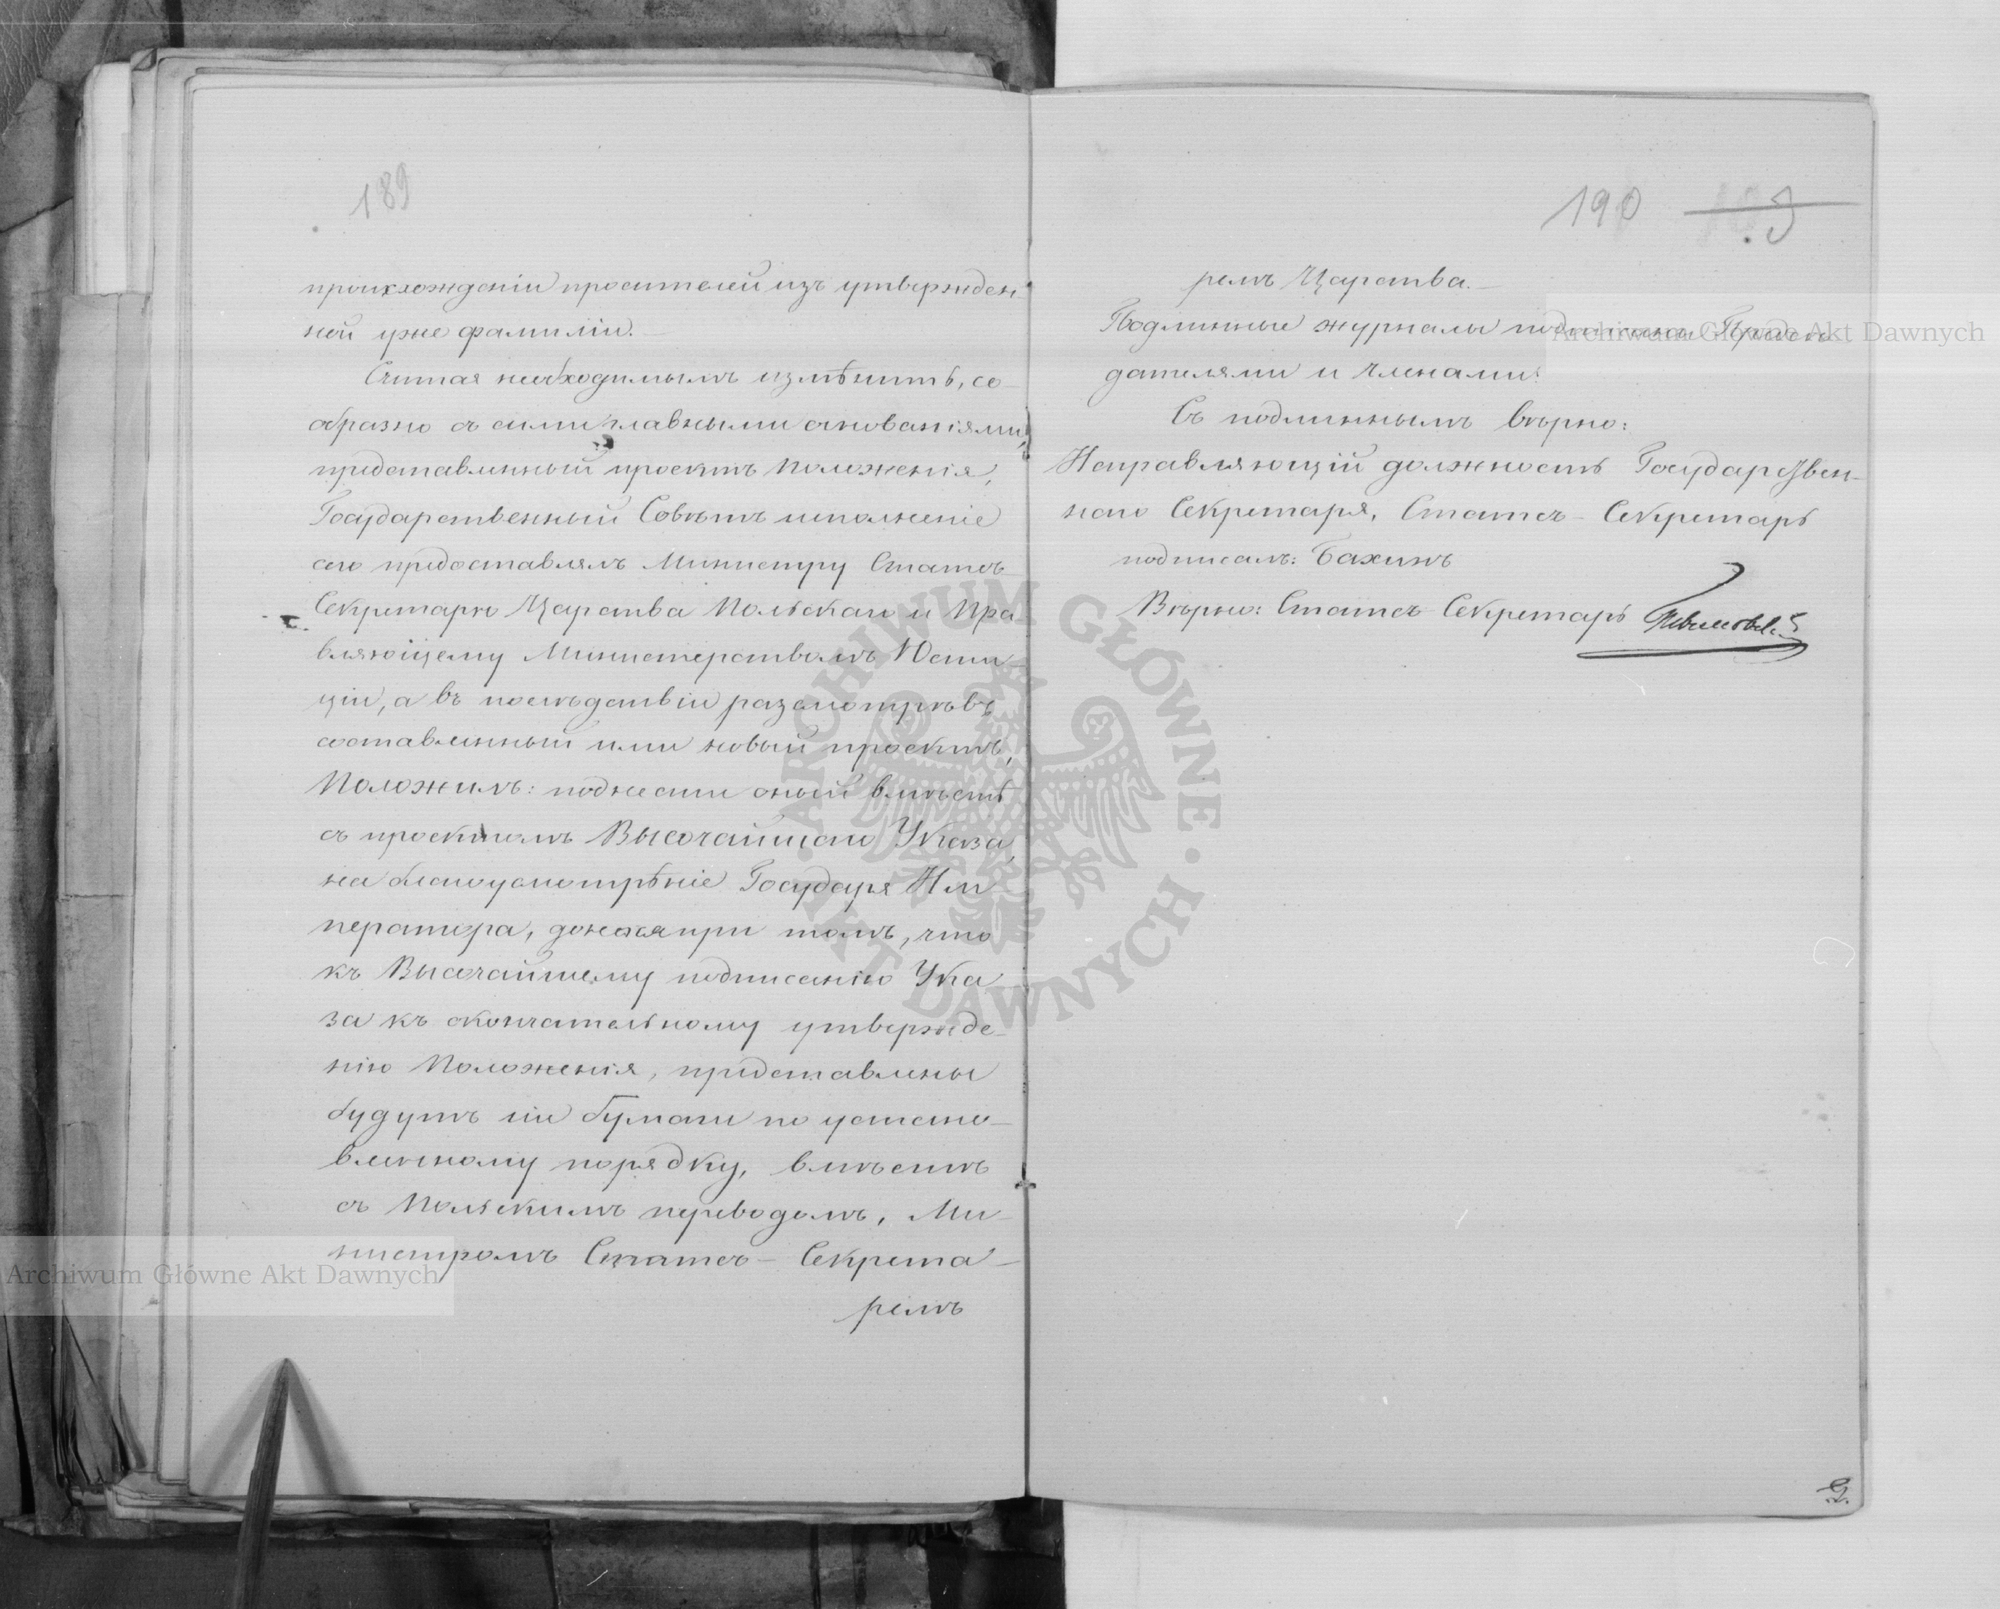 189
происхожденіи просителей изъ утвержден-
ной уже фамиліи.
Считая необходимымъ измѣнить, со-
образно съ сими главными основаніями,
представленный проектъ Положенія,
Государственный Совѣтъ исполненіе
сего предоставлялъ Министру Статсъ-
Секретарю Царства Польскаго и Упра-
вляющему Министерствомъ Юсти-
ціи, а въ послѣдствіи разсмотрѣвъ
составленный ими новый проектъ,
Положилъ: поднести оный вмѣстѣ
съ проектомъ Высочайшаго Указа,
на благоусмотрѣніе Государя Им-
ператора, донося при томъ, что
къ Высочайшему подписанію Ука-
за къ окончательному утвержде-
нію Положенія, представлены
будутъ сіи бумаги по устано-
вленному порядку, вмѣстѣ
съ Польскимъ переводомъ, Ми-
нистромъ Статсъ-Секрета-
ремъ
190
ремъ Царства.
Подлинные журналы подписаны Предсѣ-
дателями и Членами.
Съ подлиннымъ вѣрно:
Исправляющій должность Государствен-
наго Секретаря, Статсъ-Секретарь
подписалъ: Бахтинъ
Вѣрно: Статсъ Секретарь
Archiwum Główne Akt Dawnych
Archiwum Główne Akt Dawnych
ARCHIWUM GŁÓWNE · AKT DAWNYCH ·